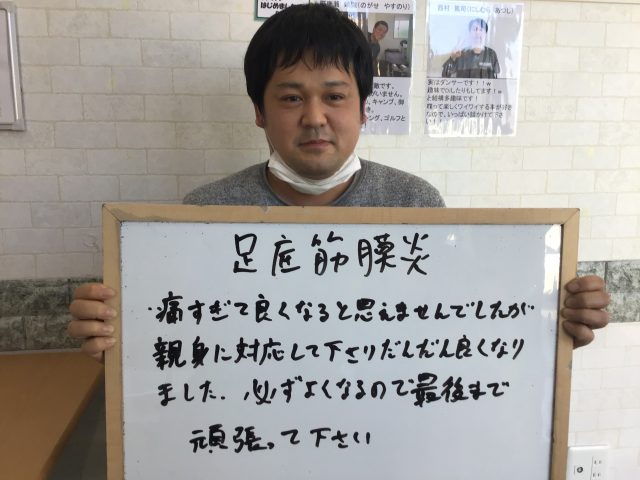 はじめまし
(のがせ やすのり)
西村 篤司(にしむら あつし)
実はダンサーです!!w
趣味でDJしたりもしてます!w
と結構多趣味です!
喋って楽しくワイワイする事が好き
なので、いっぱい話かけて下さ
い!
足底筋膜炎
・痛すぎて良くなると思えませんでしたが
親身に対応して下さりだんだん良くなり
ました。必ずよくなるので最後まで
頑張って下さい